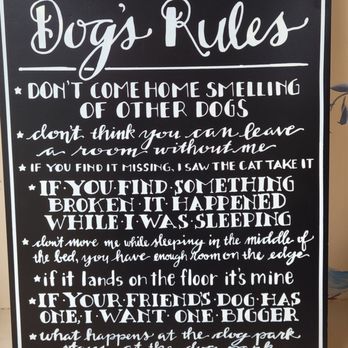 Dog's Rules
★ DON'T COME HOME SMELLING
OF OTHER DOGS
★ don't think you can leave
a room without me
★ IF YOU FIND IT MISSING, I SAW THE CAT TAKE IT
★ IF YOU FIND SOMETHING
BROKEN IT HAPPENED
WHILE I WAS SLEEPING
★ don't move me while sleeping in the middle of
the bed, you have enough room on the edge
★ if it lands on the floor it's mine
★ IF YOUR FRIEND'S DOG HAS
ONE I WANT ONE BIGGER
★ what happens at the dog park